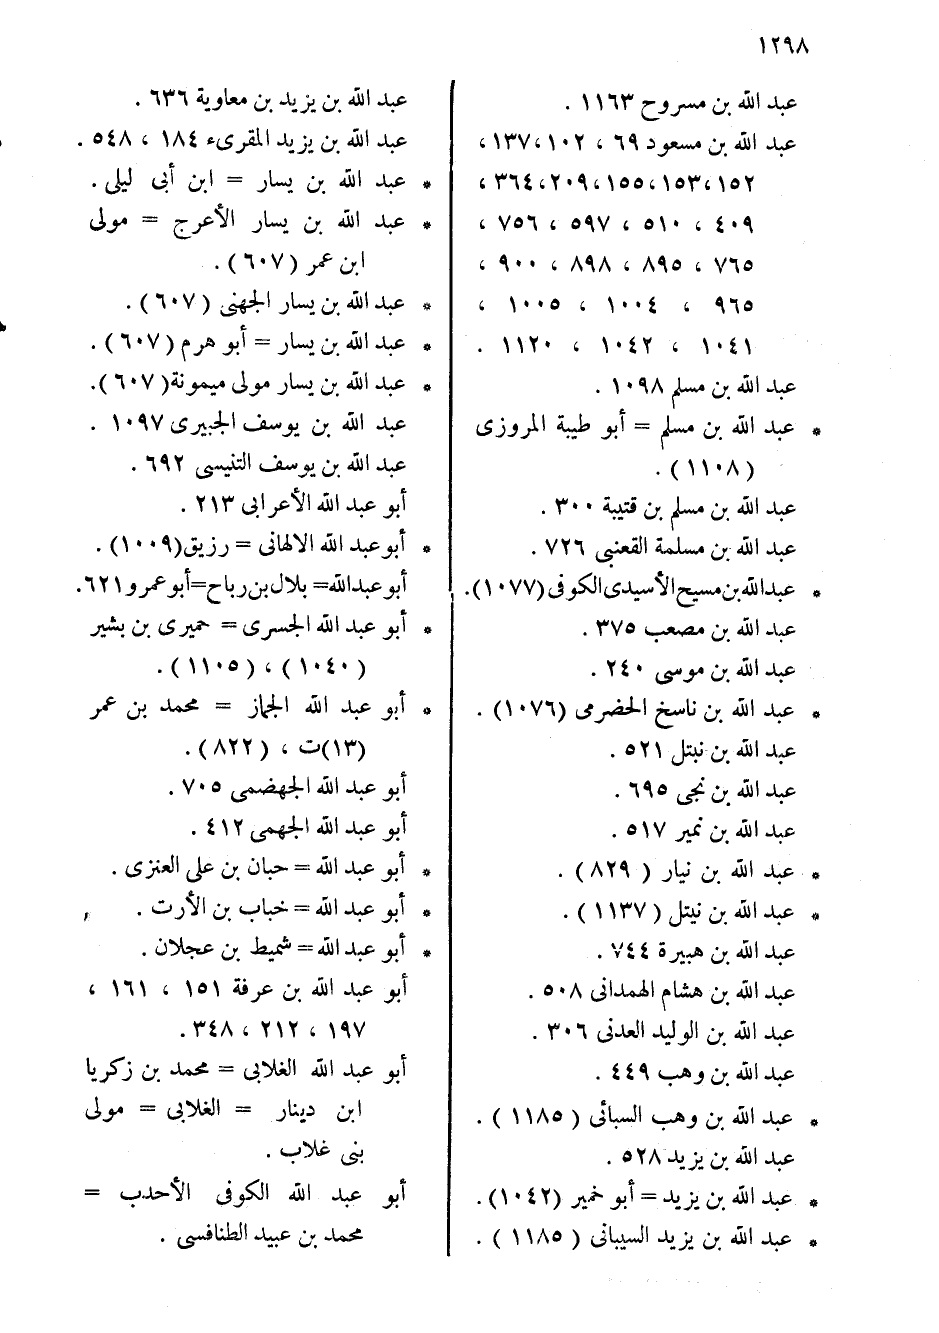 ١٢٩٨
عبد الله بن مسروح ١١٦٣ .
عبد الله بن مسعود ٦٩ ، ١٠٢ ،١٣٧ ،
١٥٢ ،١٥٣ ،١٥٥ ،٢٠٩ ،٣٦٤ ،
٤٠٩ ، ٥١٠ ، ٥٩٧ ، ٧٥٦ ،
٧٦٥ ، ٨٩٥ ، ٨٩٨ ، ٩٠٠ ،
٩٦٥ ، ١٠٠٤ ، ١٠٠٥ ،
١٠٤١ ، ١٠٤٢ ، ١١٢٠ .
عبد الله بن مسلم ١٠٩٨ .
* عبد الله بن مسلم = أبو طيبة المروزى
(١١٠٨) .
عبد الله بن مسلم بن قتيبة ٣٠٠ .
عبد الله بن مسلمة القعنبى ٧٢٦ .
* عبد الله بن مسيح الأسيدى الكوفى (١٠٧٧) .
عبد الله بن مصعب ٣٧٥ .
عبد الله بن موسى ٢٤٠ .
* عبد الله بن ناسخ الحضرمى (١٠٧٦) .
عبد الله بن نبتل ٥٢١ .
عبد الله بن نجى ٦٩٥ .
عبد الله بن نمير ٥١٧ .
* عبد الله بن نيار ( ٨٢٩ ) .
* عبد الله بن نيتل ( ١١٣٧ ) .
عبد الله بن هبيرة ٧٤٤ .
عبد الله بن هشام الهمدانى ٥٠٨ .
عبد الله بن الوليد العدنى ٣٠٦ .
عبد الله بن وهب ٤٤٩ .
* عبد الله بن وهب السبائى ( ١١٨٥ ) .
عبد الله بن يزيد ٥٢٨ .
* عبد الله بن يزيد = أبو خمير (١٠٤٢) .
* عبد الله بن يزيد السيبانى ( ١١٨٥ ) .
عبد الله بن يزيد بن معاوية ٦٣٦ .
عبد الله بن يزيد المقرىء ١٨٤ ، ٥٤٨ .
* عبد الله بن يسار = ابن أبى ليلى .
* عبد الله بن يسار الأعرج = مولى
ابن عمر (٦٠٧) .
* عبد الله بن يسار الجهنى (٦٠٧) .
* عبد الله بن يسار = أبو هرم (٦٠٧) .
* عبد الله بن يسار مولى ميمونة (٦٠٧) .
عبد الله بن يوسف الجبيرى ١٠٩٧ .
عبد الله بن يوسف التنيسى ٦٩٢ .
أبو عبد الله الأعرابى ٢١٣ .
* أبو عبد الله الالهانى = رزيق (١٠٠٩) .
أبو عبد الله = بلال بن رباح = أبو عمرو ٦٢١ .
* أبو عبد الله الجسرى = حميرى بن بشير
(١٠٤٠) ، (١١٠٥) .
* أبو عبد الله الجماز = محمد بن عمر
(١٣)ت ، (٨٢٢) .
أبو عبد الله الجهضمى ٧٠٥ .
أبو عبد الله الجهمى ٤١٢ .
* أبو عبد الله = حبان بن على العنزى .
* أبو عبد الله = خباب بن الأرت .
* أبو عبد الله = شميط بن عجلان .
أبو عبد الله بن عرفة ١٥١ ، ١٦١ ،
١٩٧ ، ٢١٢ ، ٣٤٨ .
أبو عبد الله الغلابى = محمد بن زكريا
ابن دينار = الغلابى = مولى
بنى غلاب .
أبو عبد الله الكوفى الأحدب =
محمد بن عبيد الطنافسى .